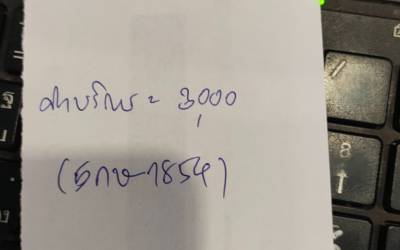 ค่าบริการ = 3,000
(ธกษ-1854)
ฐ
8